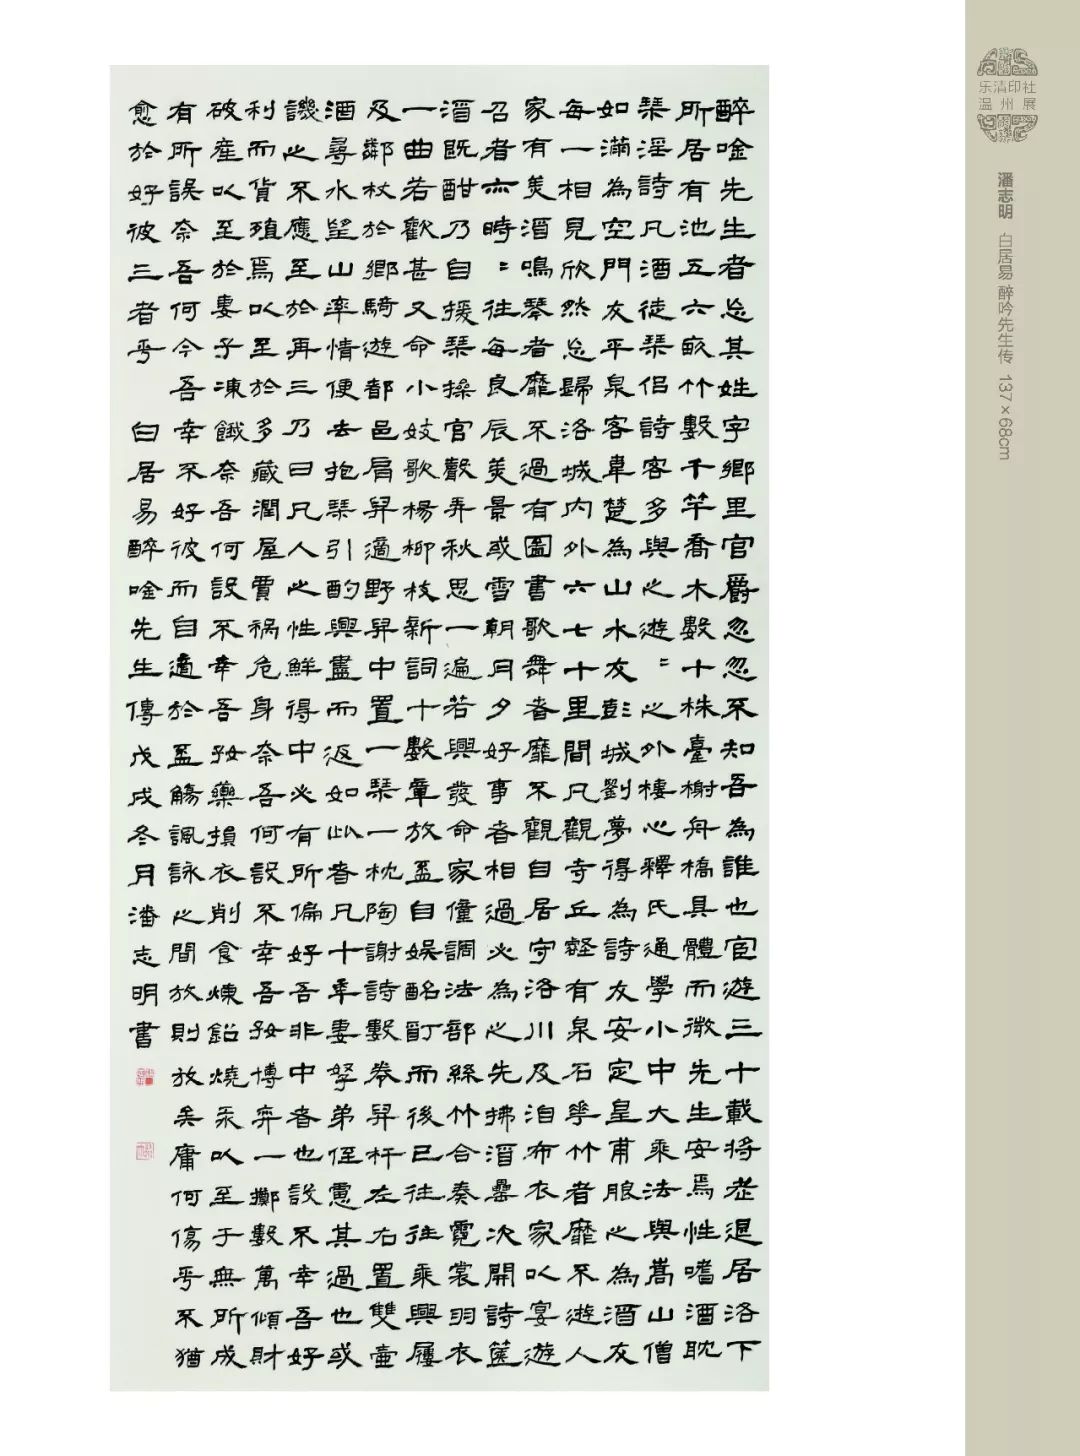 醉唫先生者忘其姓字鄉里官爵忽忽不知吾為誰也宦遊三十載將老退居洛下
所居有池五六畝竹數千竿喬木數十株臺榭舟橋具體而微先生安焉性嗜酒耽
琹淫詩凡酒徒琹侶詩客多與之遊〻之外棲心釋氏通學小中大乘法與嵩山僧
如滿為空門友平泉客韋楚為山水友彭城劉夢得為詩友安定皇甫朗之為酒友
每一相見欣然忘歸洛城內外六七十里間凡觀寺丘墅有泉石花竹者靡不遊人
家有美酒鳴琴者靡不過有圖書歌舞者靡不觀自居守洛川及洎布衣家以宴遊
召者亦時〻往每良辰美景或雪朝月夕好事者相過必為之先拂酒罍次開詩篋
酒既酣乃自援琹操宮聲弄秋思一遍若興發命家僮調法部絲竹合奏霓裳羽衣
一曲若歡甚又命小妓歌楊柳枝新詞十數章放盃自娛酩酊而後已往往乘興屨
及鄰杖於鄉騎遊都邑肩舁適野舁中置一琹一枕陶謝詩數卷舁杆左右置雙壺
酒尋水望山率情便去抱琹引酌興盡而返如此者凡十年妻孥弟侄慮其過也或
譏之不應至於再三乃曰凡人之性鮮得中必有所偏好吾非中者也設不幸吾好
利而貨殖焉以至於多藏潤屋賈禍危身奈吾何設不幸吾好博弈一擲數萬傾財
破產以至於妻子凍餓奈吾何設不幸吾好藥損衣削食煉鉛燒汞以至于無所成
有所誤奈吾何今吾幸不好彼而自適於盃觴諷詠之間放則放矣庸何傷乎不猶
愈於好彼三者乎 白居易醉唫先生傳戊戌冬月潘志明書
乐清印社
温州展
潘志明 白居易 醉吟先生传 137×68cm